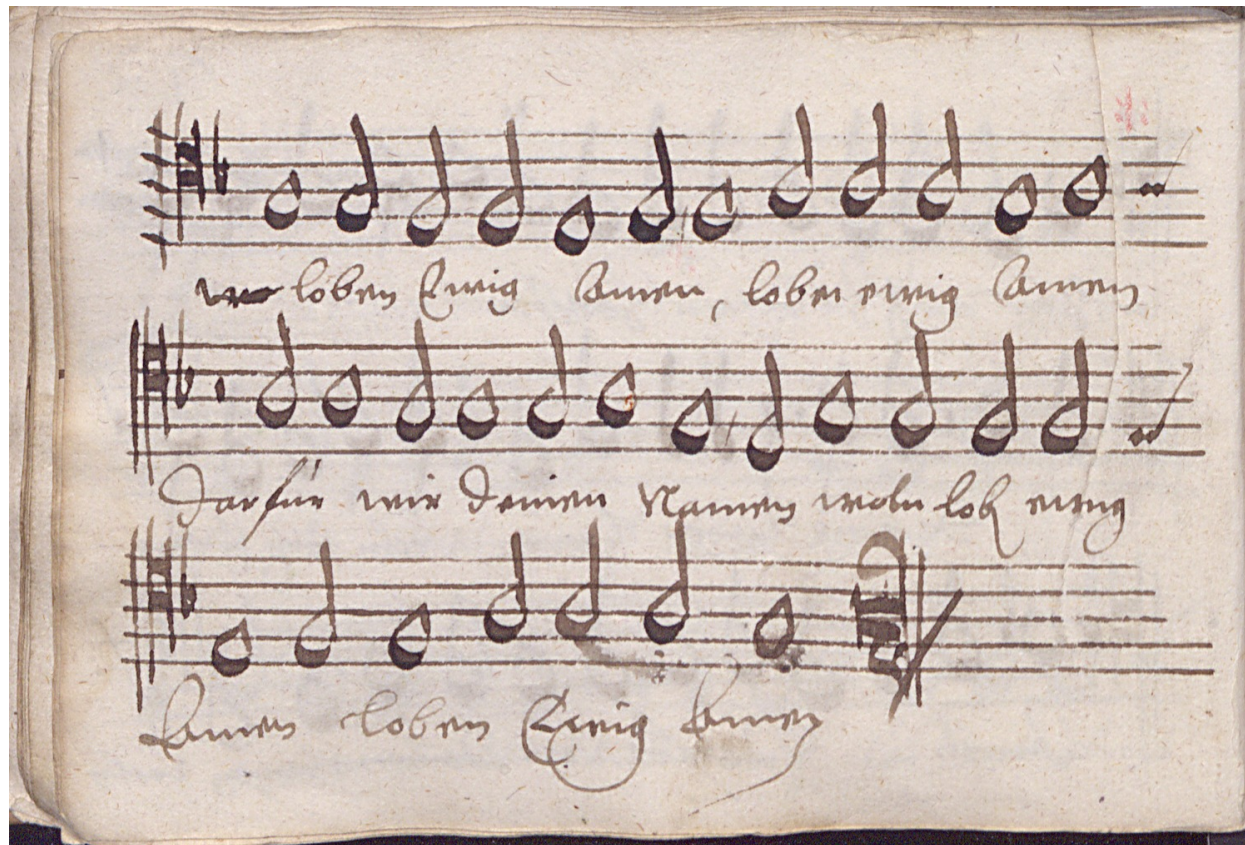 loben Ewig Amen, loben ewig Amen
Darfür wir deinen Namen ewig
Amen loben Ewig Amen